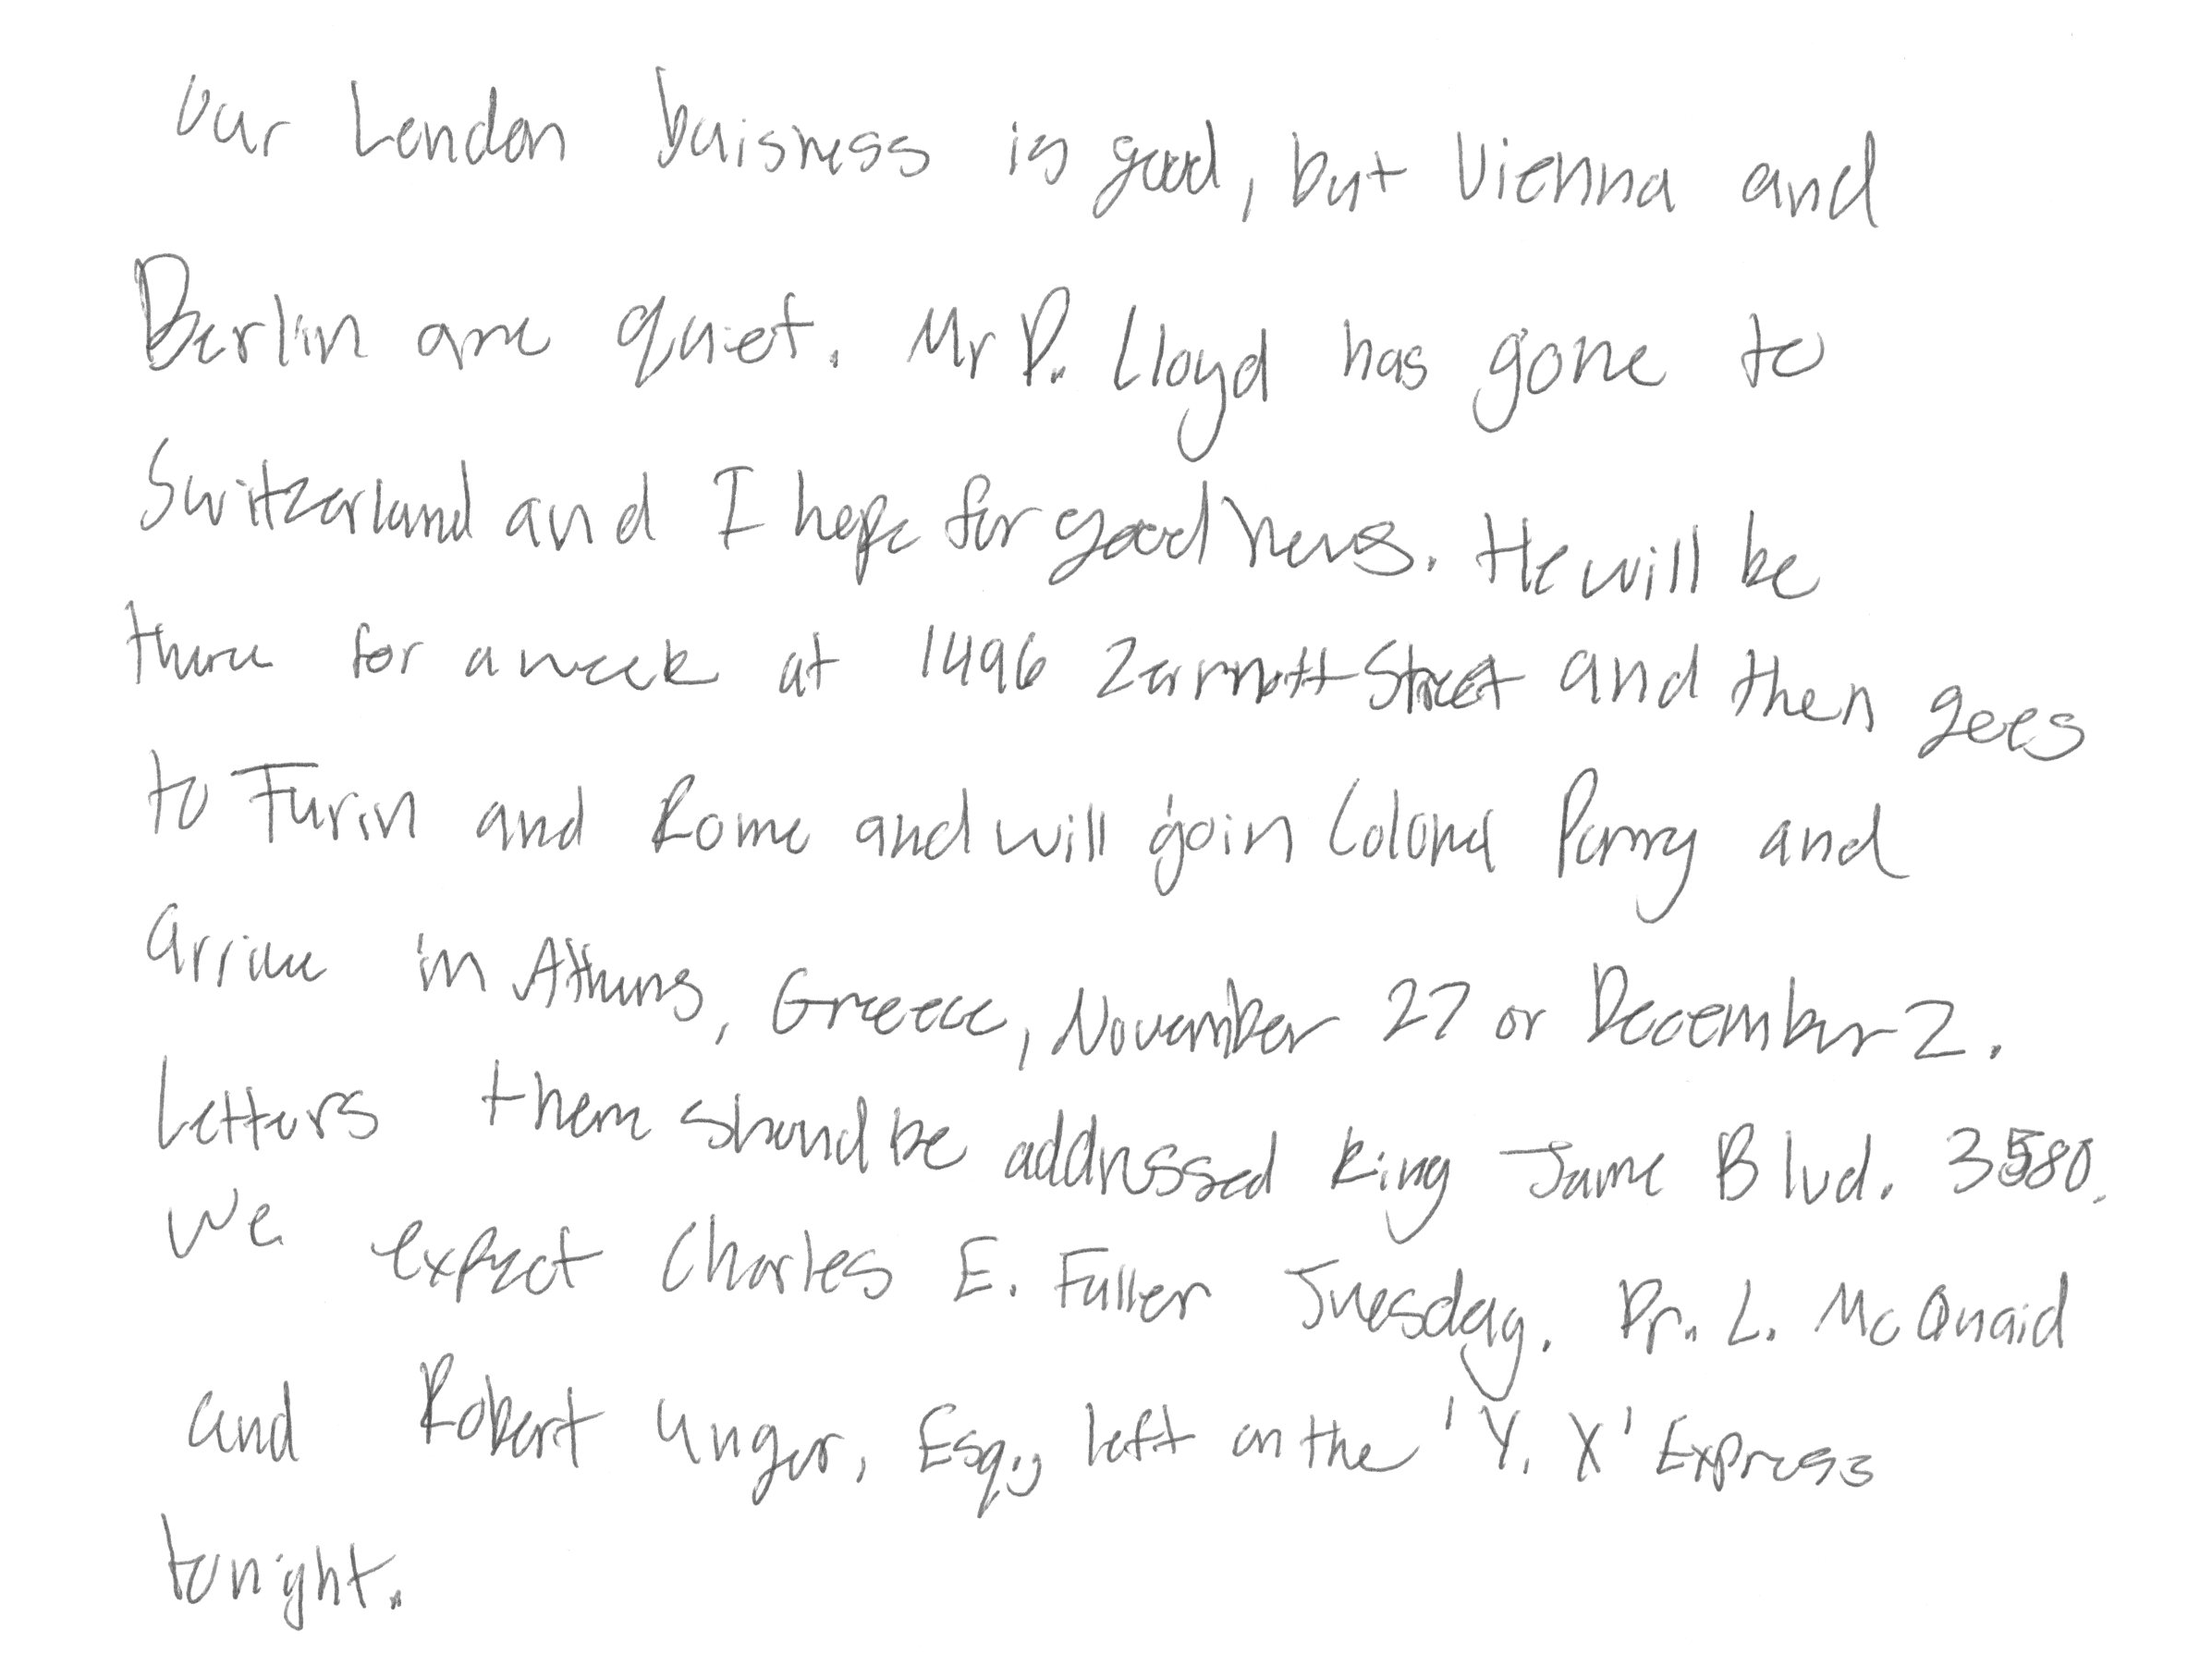 Our London buisness is good, but Vienna and
Berlin are quiet. Mr P. Lloyd has gone to
Switzerland and I hope for good news. He will be
there for a week at 1496 Zermott Street and then goes
to Turin and Rome and will join Colonel Parry and
arrive in Athens, Greece, November 27 or December 2.
Letters there should be addressed King Jame Blvd. 3580.
We expect Charles E. Fuller Tuesday. Dr. L. McQuaid
and Robert Unger, Esq., left on the 'Y. X' Express
tonight.